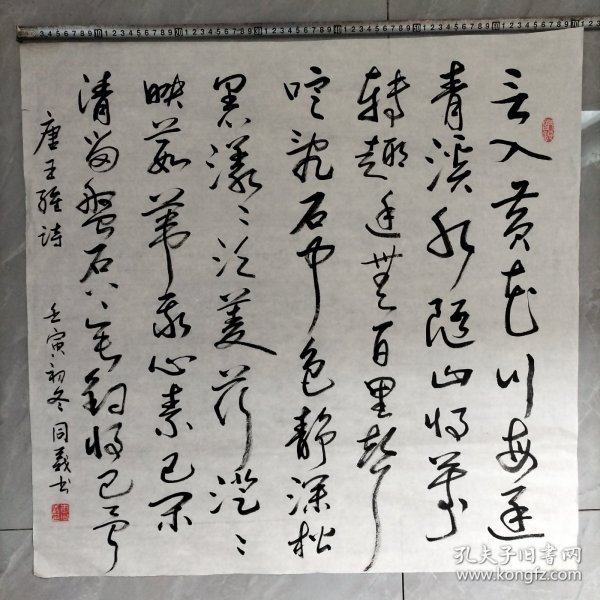 言入黄花川每逐
青溪水随山将萬
轉趣逐無百里声
喧乱石中色静深松
里漾〻泛菱荇澄〻
映葭苇我心素已闲
清留盤石上垂钓将已矣
唐王維詩 壬寅初冬同義书
孔夫子旧书网
www.kongfz.com